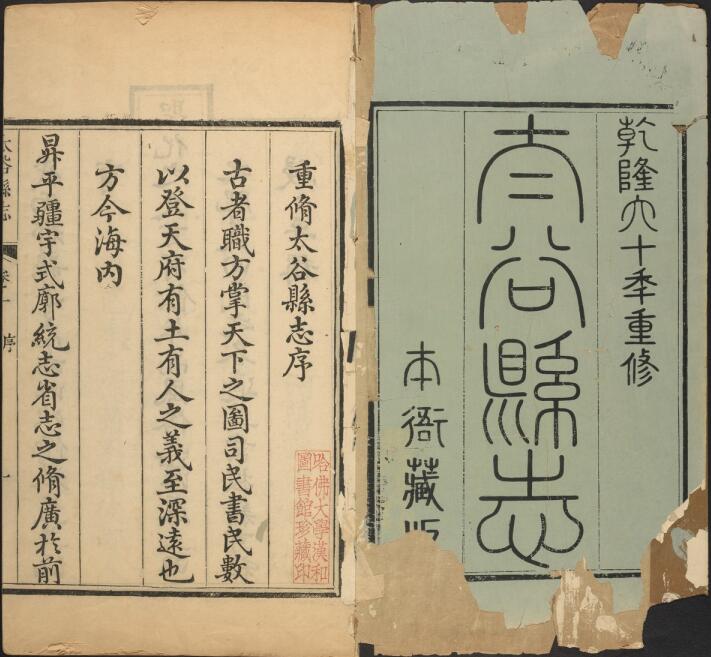 乾隆六十年重修
太谷縣志
本衙藏版
重脩太谷縣志序
古者職方掌天下之圖司民書民數
以登天府有土有人之義至深遠也
方今海内
昇平疆宇式廓統志省志之脩廣於前
哈佛大學漢和
圖書館珍藏印
太谷縣志
序
一